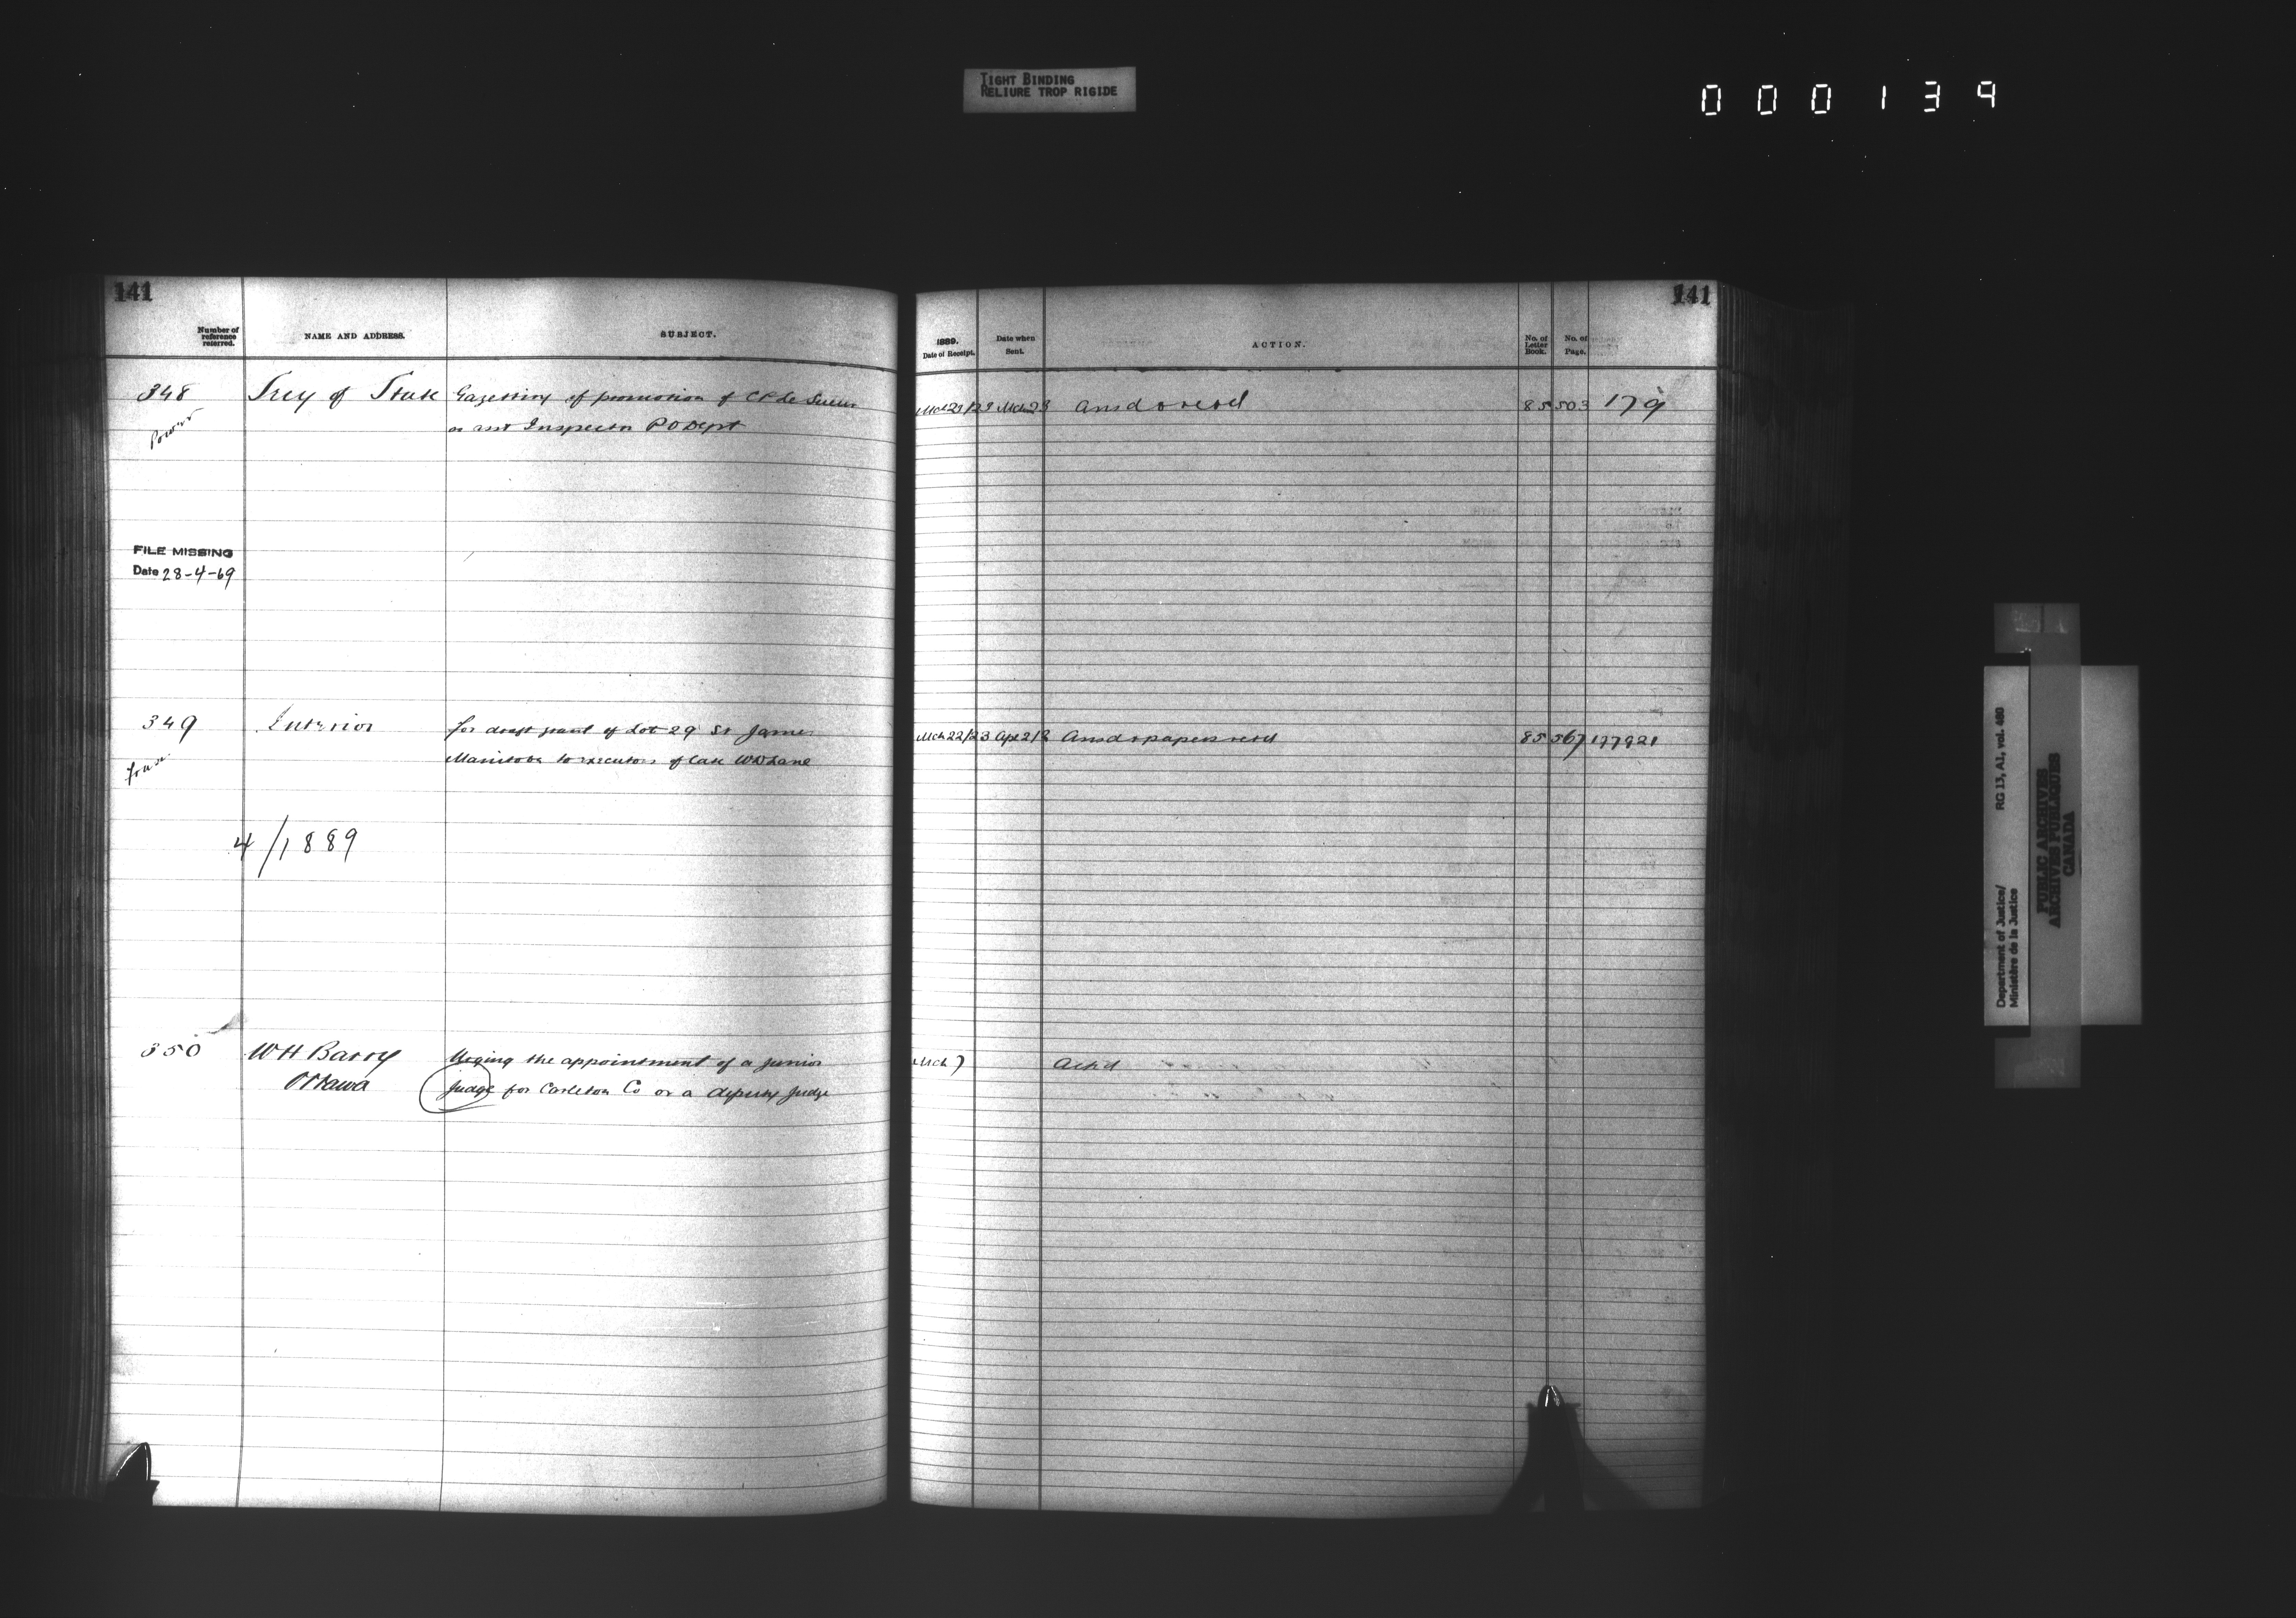 TIGHT BINDING
RELIURE TROP RIGIDE
000139
141
Number of reference referred.
NAME AND ADDRESS.
SUBJECT.
348
Power
Secy of State
Gazetting of promotion of C P Le Sueur
as asst Inspector P O Dept
FILE MISSING
Date 28-4-69
349
Interior
for draft grant of Lot 29 St James
Manitoba to executors of late W D Lane
4/1889
350
W H Barry
Ottawa
Urging the appointment of a junior
judge for Carleton Co or a deputy judge
141
1889.
Date of Receipt.
Date when Sent.
ACTION.
No. of Letter Book.
No. of Page.
Mch 23 Ansd & retd 85 503 179
Mch 22/23 Apr 2/2 Ansd & papers retd 85 567 177921
Mch 7 Ackd
Department of Justice/ RG 13, A1, vol. 480
Ministère de la Justice
PUBLIC ARCHIVES
ARCHIVES PUBLIQUES
CANADA